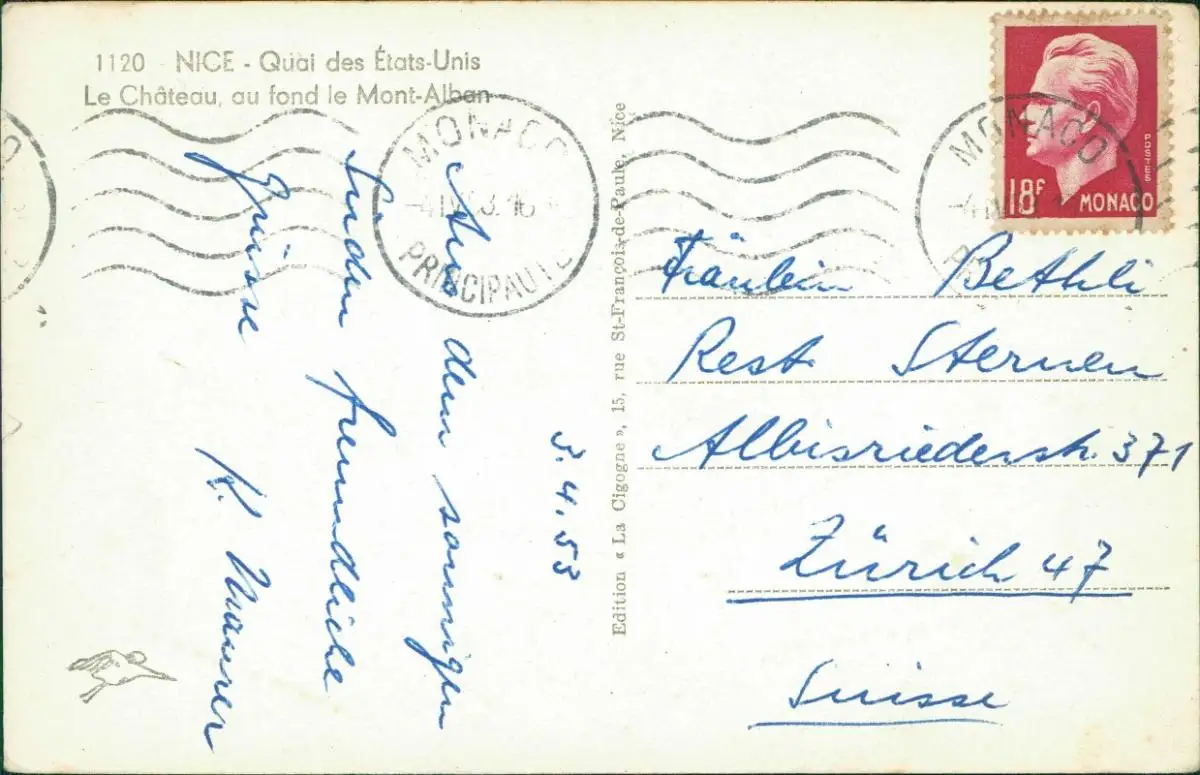 1120 - NICE - Quai des États-Unis
Le Château, au fond le Mont-Alban
MONACO
PRINCIPAUTE
3.4.53
Aus dem sonnigen
Süden freundliche
Grüsse
K. Maurer
Edition « La Cigogne », 15, rue St-François-de-Paule, Nice
MONACO
POSTES
18F MONACO
Fräulein Bethli
Rest. Sternen
Albisriederstr. 371
Zürich 47
Suisse